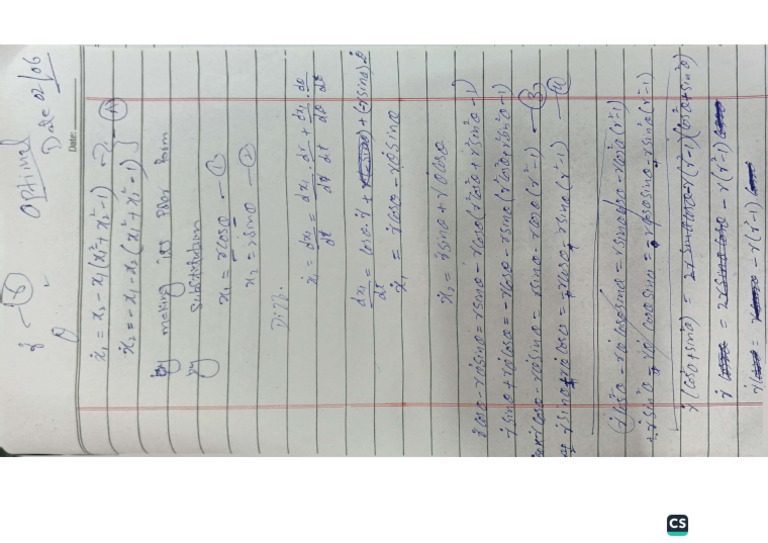 Optimal
Date 02/06
Date:
ẋ₁ = x₂ - x₁(x₁² + x₂² - 1)
ẋ₂ = -x₁ - x₂(x₁² + x₂² - 1)
By making its Polar form
by Substitution
x₁ = r cosθ — ①
x₂ = r sinθ — ②
Diff.
ẋ₁ = dx₁/dt = dx₁/dr · dr/dt + dx₁/dθ · dθ/dt
dx₁/dt = cosθ · ṙ + (-r sinθ) θ̇
ẋ₁ = ṙ cosθ - r θ̇ sinθ
ẋ₂ = ṙ sinθ + r θ̇ cosθ
ṙ cosθ - r θ̇ sinθ = r sinθ - r cosθ (r² cos²θ + r² sin²θ - 1)
ṙ sinθ + r θ̇ cosθ = - r cosθ - r sinθ (r² cos²θ + r² sin²θ - 1)
ṙ cosθ - r θ̇ sinθ = r sinθ - r cosθ (r² - 1) — ③
ṙ sinθ + r θ̇ cosθ = - r cosθ - r sinθ (r² - 1) — ④
ṙ cos²θ - r θ̇ cosθ sinθ = r sinθ cosθ - r cos²θ (r² - 1)
ṙ sin²θ + r θ̇ cosθ sinθ = - r cosθ sinθ - r sin²θ (r² - 1)
ṙ (cos²θ + sin²θ) = - r (r² - 1) (cos²θ + sin²θ)
ṙ = - r (r² - 1)
ṙ = - r (r² - 1)
CS